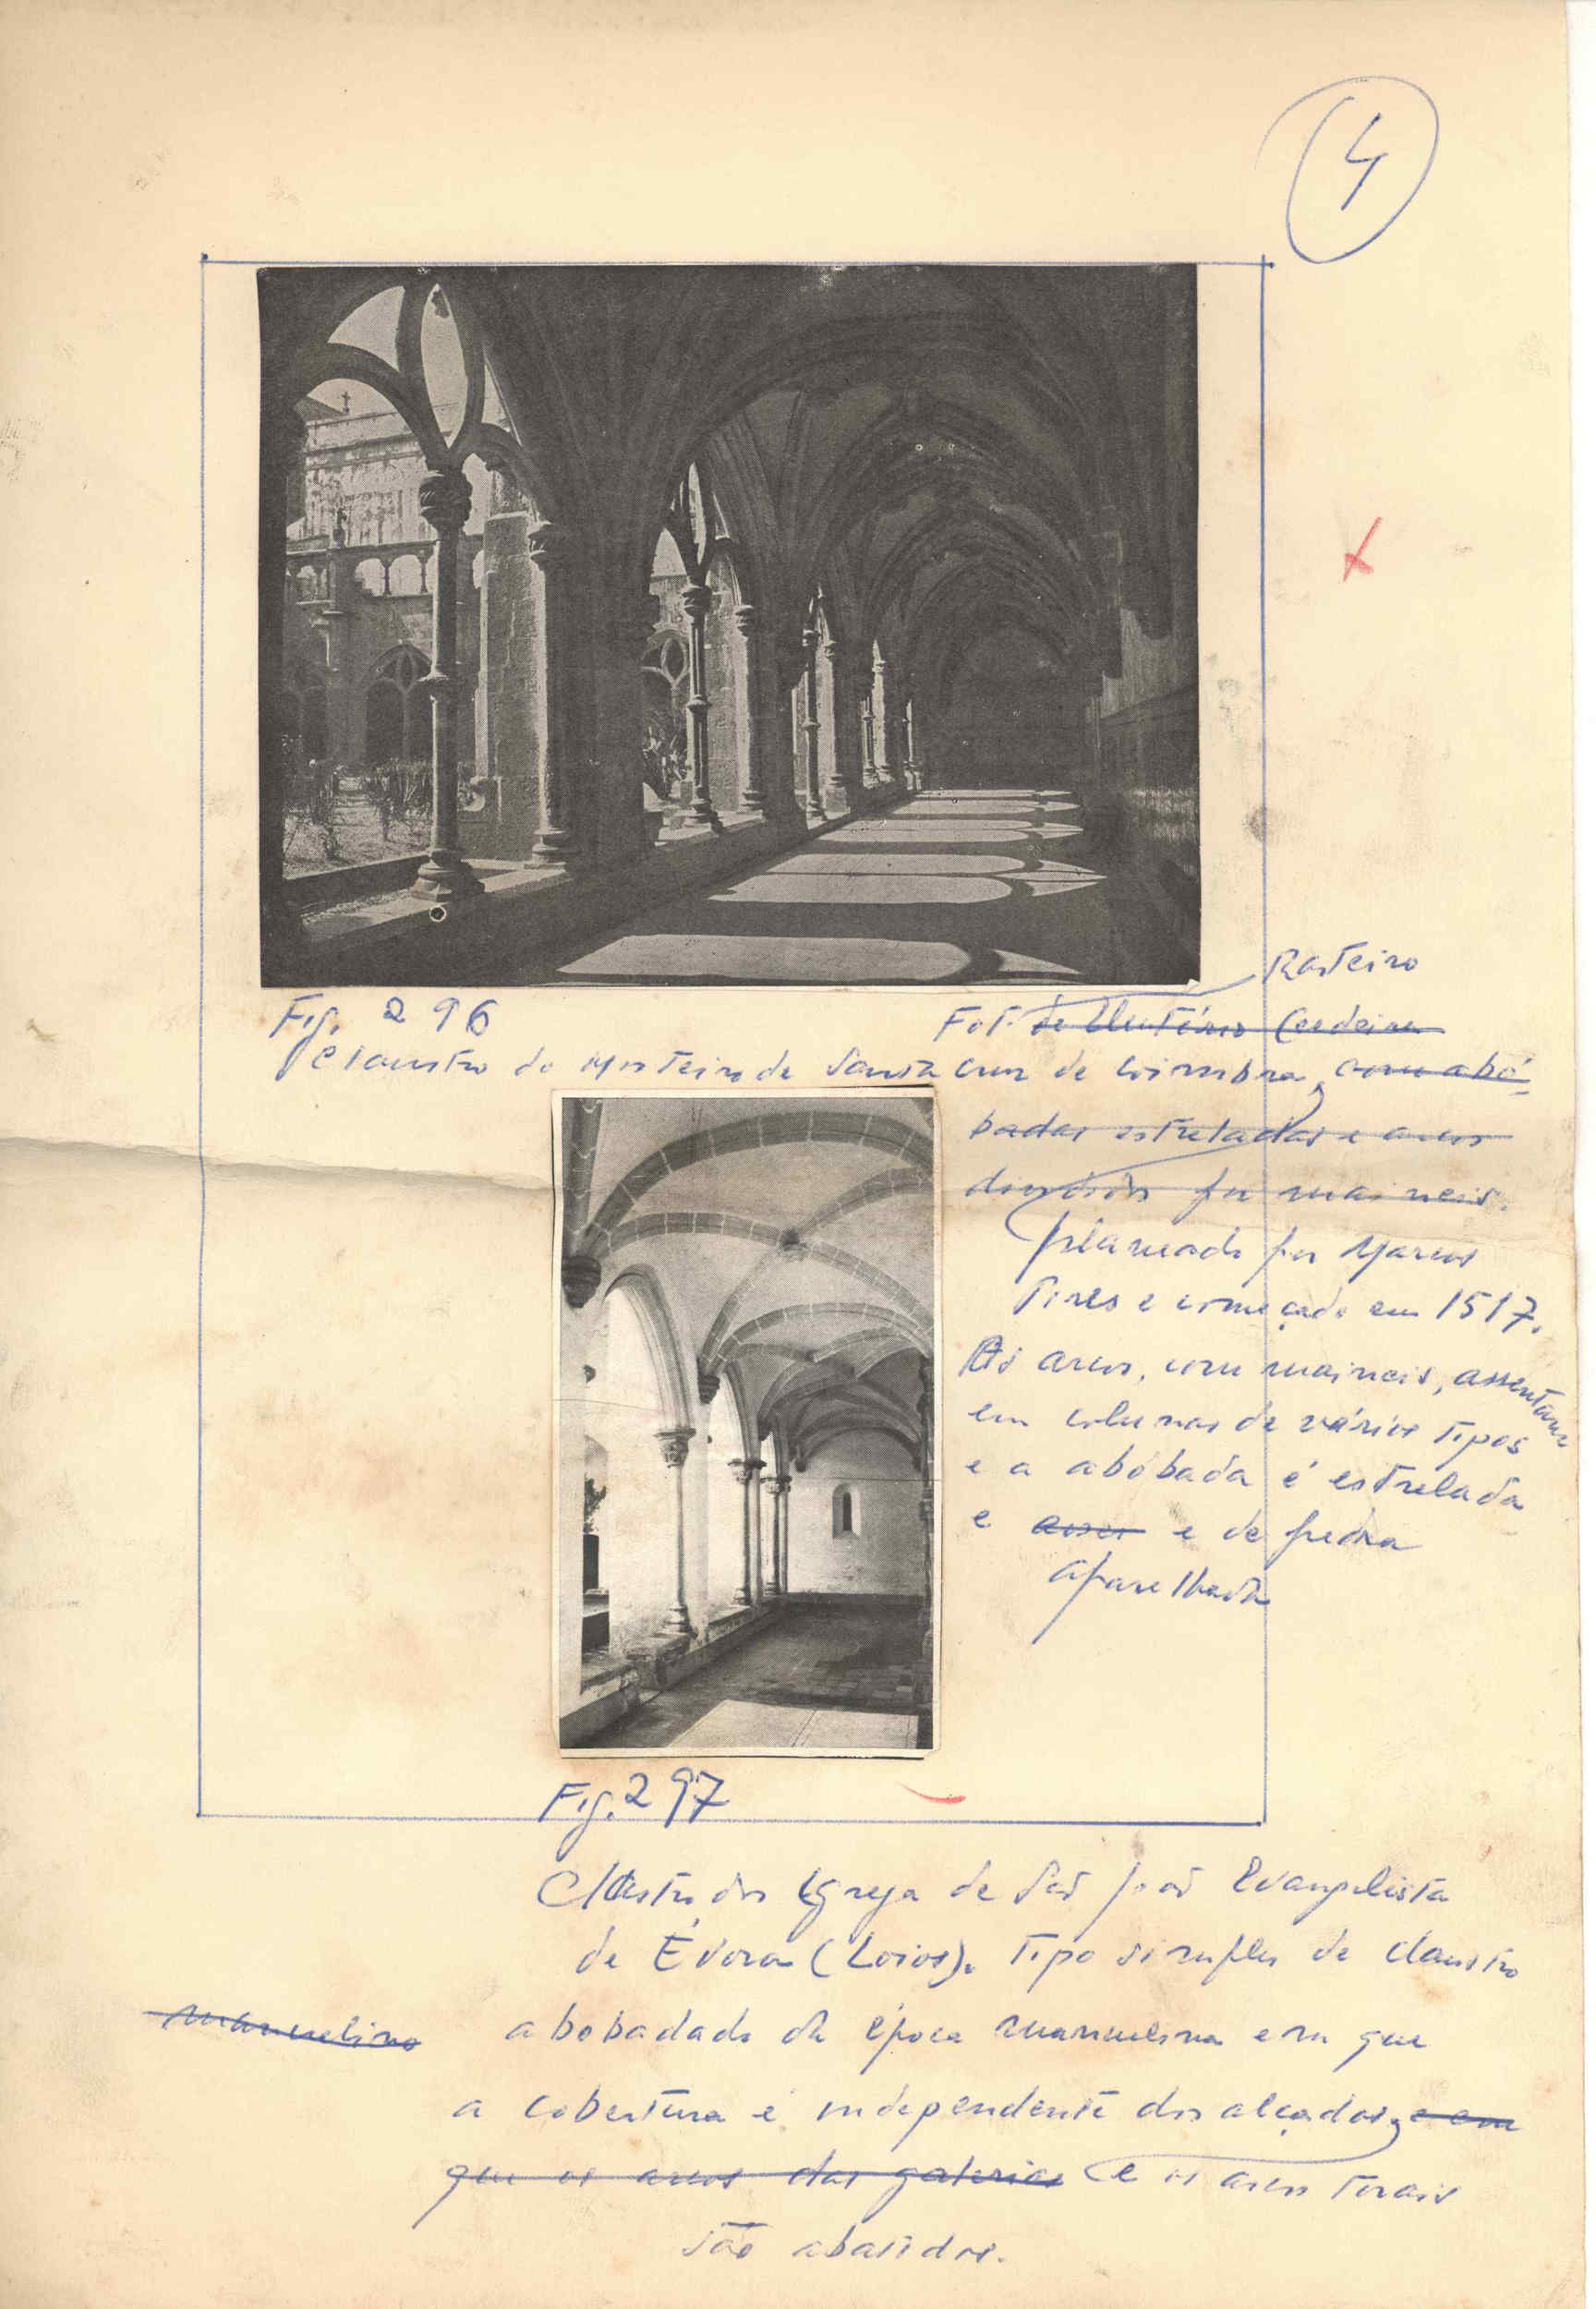 4
Rasteiro
Fig. 296
Fot. de Cerdeira
Claustro do Mosteiro de Santa Cruz de Coimbra, com abó-
badas estreladas e arcos
por maineis.
planeado por Marcos
Pires e começado em 1517.
Os arcos, com maineis, assentam
em colunas de vários tipos
e a abóbada é estrelada
e e de pedra
aparelhada
Fig. 297
Claustro da Igreja de São João Evangelista
de Évora (Loios). Tipo simples de claustro
manuelino
abobadado da época manuelina em que
a cobertura é independente dos alçados, e em
que os arcos das galerias e os arcos torais
são abatidos.